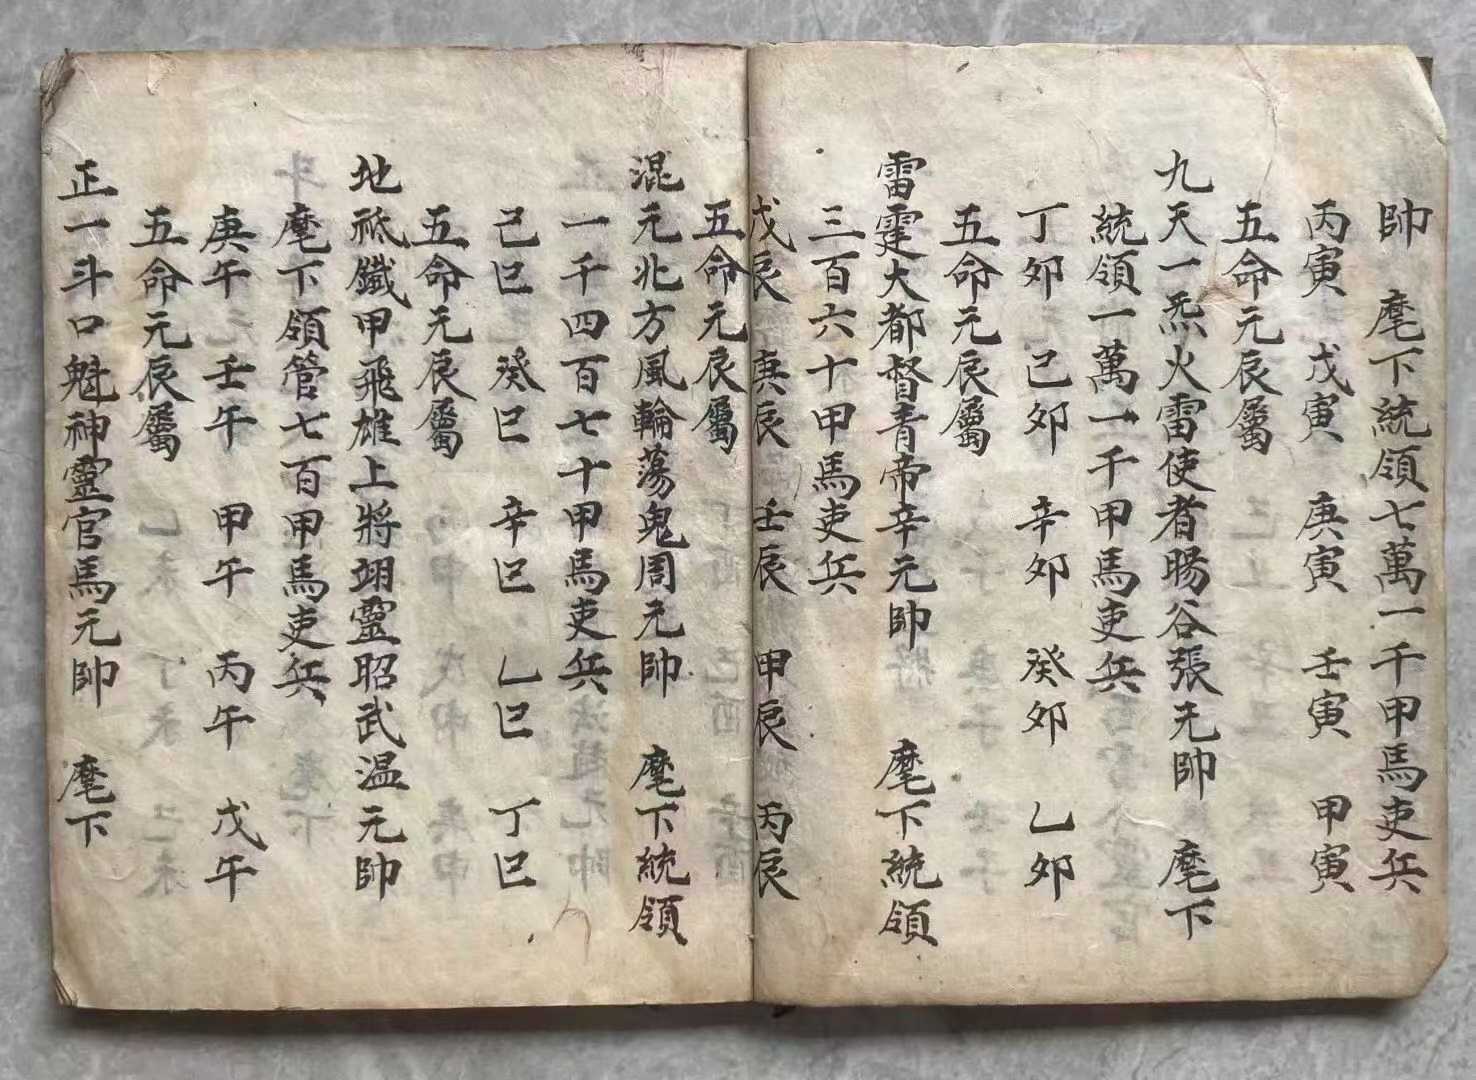 帥　麾下統領七萬一千甲馬吏兵
丙寅　戊寅　庚寅　壬寅　甲寅
五命元辰屬
九天一炁火雷使者暘谷張元帥　麾下
統領一萬一千甲馬吏兵
丁卯　己卯　辛卯　癸卯　乙卯
五命元辰屬
雷霆大都督青帝辛元帥　麾下統領
三百六十甲馬吏兵
戊辰　庚辰　壬辰　甲辰　丙辰
五命元辰屬
混元北方風輪蕩鬼周元帥　麾下統領
一千四百七十甲馬吏兵
己巳　癸巳　辛巳　乙巳　丁巳
五命元辰屬
地祇鐵甲飛雄上將翊靈昭武温元帥
麾下領管七百甲馬吏兵
庚午　壬午　甲午　丙午　戊午
五命元辰屬
正一斗口魁神靈官馬元帥　麾下